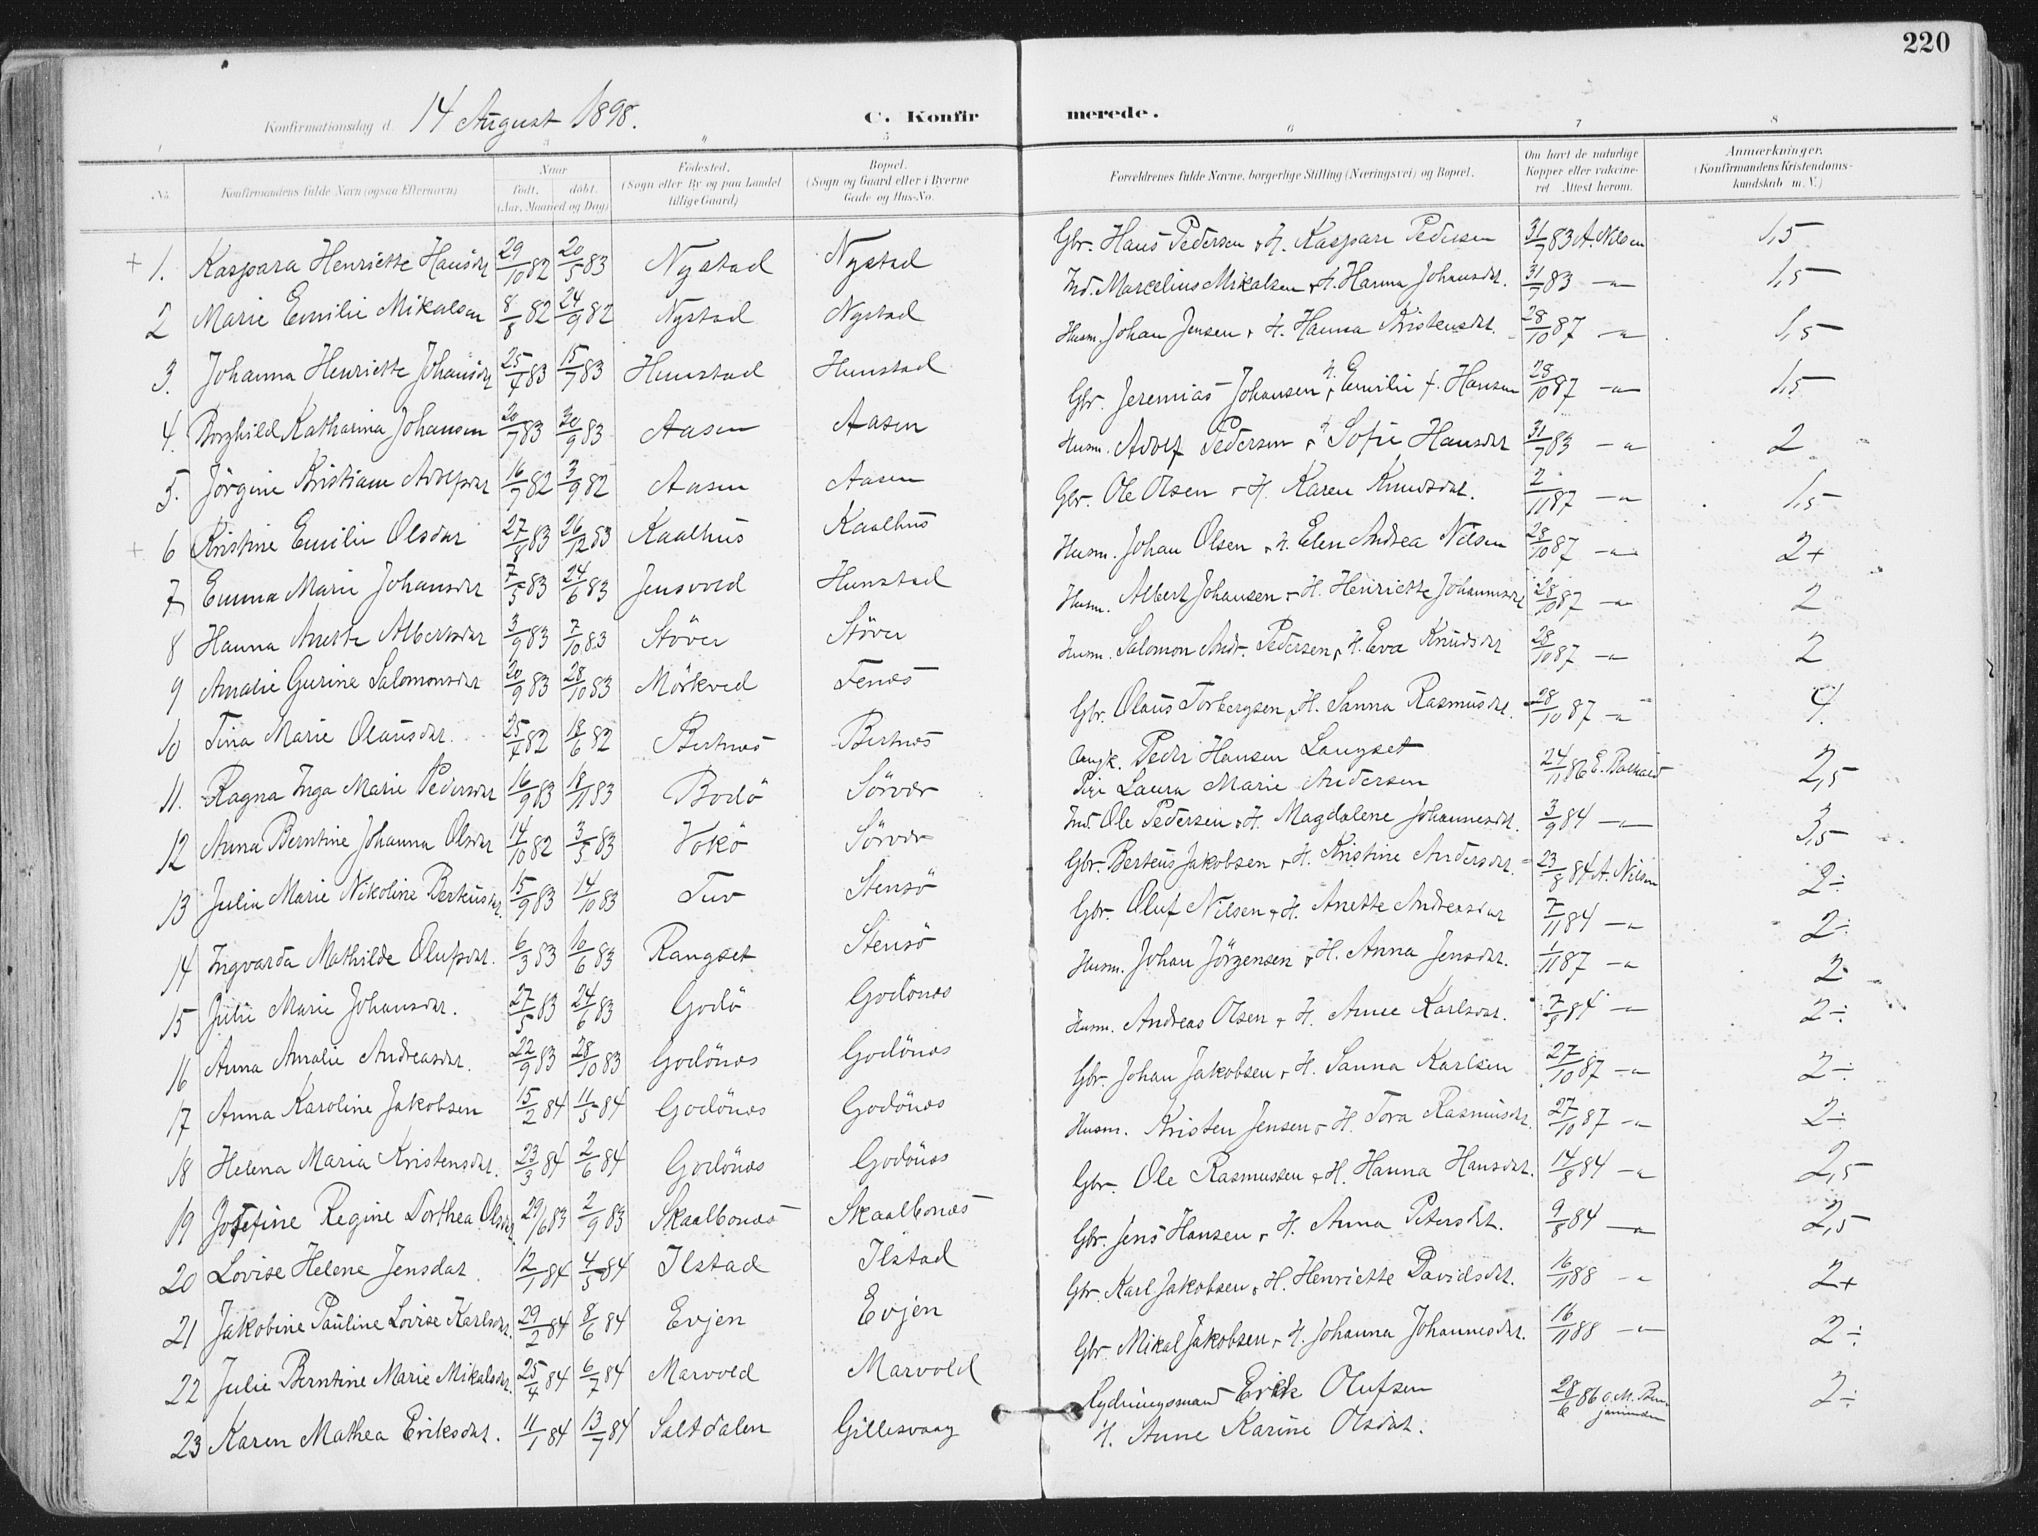 220
Konfirmationsdag d. 14 August 1898. C. Konfirmerede.
1 2 3 4 5 6 7 8
No. Konfirmandens fulde Navn (ogsaa Efternavn) Naar født. døbt. (Aar, Maaned og Dag) Fødested. (Sogn eller By og paa Landet tillige Gaard) Bopæl. (Sogn og Gaard eller i Byerne Gade og Hus-No. Forældrenes fulde Navne, borgerlige Stilling (Næringsvei) og Bopæl. Om havt de naturlige Kopper eller vaccineret. Attest herom. Anmærkninger. (Konfirmandens Kristendomskundskab m. V.)
+ 1. Kaspara Henriette Hansdat 29/10 82 20/5 83 Nystad Nystad Gbr. Hans Pedersen & H. Kaspara Pedersen 31/7 83 A. Nilsen 1,5
2 Marie Emilie Mikalsen 8/8 82 24/9 82 Nystad Nystad Ind. Marcelius Mikalsen & H. Hanna Johansdat. 31/7 83 -"- 1,5
3. Johanna Henriette Johansdat 25/4 83 15/7 83 Hunstad Hunstad Husm. Johan Jensen & H. Hanna Kristensdat. 28/10 87 -"- 1,5
4. Borghild Katharina Johansen 20/7 83 30/9 83 Aasen Aasen Gbr. Jeremias Johansen & H. Emilie f. Hansen 28/10 87 -"- 1,5
5. Jörgine Kristiane Adolfsdat 16/7 82 3/9 82 Aasen Aasen Husm. Adolf Pedersen & H. Sofie Hansdat 31/7 83 -"- 2
+ 6 Kristine Emilie Olsdat 27/8 83 26/12 83 Kaalhus Kaalhus Gbr. Ole Olsen & H. Karen Knudsdat. 2/11 87 -"- 1,5
7 Emma Marie Johansdat 7/5 83 24/6 83 Jensvold Hunstad Husm. Johan Olsen & H. Elen Andrea Nilsen 28/10 87 -"- 2+
8 Hanna Anette Albertsdat 3/9 83 7/10 83 Stöver Stöver Husm. Albert Johansen & H. Henriette Johannesdat 28/10 87 -"- 2
9 Amalie Gurine Salomonsdat 20/9 83 28/10 83 Mörkved Fenes Husm. Salomon Andr. Pedersen & H. Eva Knudsdat 28/10 87 -"- 2
10 Tina Marie Olausdat. 25/4 82 18/6 82 Bertnes Bertnes Gbr. Olaus Torbergsen & H. Sanna Rasmusdat. 28/10 87 -"- 4.
11. Ragna Inga Marie Pedersdat 16/9 83 18/11 83 Bodö Sörvær Ungk. Peder Hansen Langset
Pige Laura Marie Andersen 24/11 86 2,5
12 Anna Berntine Johanna Olsdat 14/10 82 3/5 83 Vokö Sörvær Ind. Ole Pedersen & H. Magdalene Johannesdat. 3/9 84 -"- 3,5
13 Julia Marie Nikoline Berteusdat. 15/9 83 14/10 83 Tuv Stensö Gbr. Berteus Jakobsen & H. Kristine Andersdat. 23/8 84 A. Nilsen 2÷
14 Ingvarda Mathilde Olufsdat. 6/3 83 10/6 83 Rangset Stensö Gbr. Oluf Nilsen & H. Anette Andreasdat 7/11 84 -"- 2÷
15 Julie Marie Johansdat. 27/5 83 24/6 83 Godö Godönes Husm. Johan Jörgensen & H. Anna Jensdat. 1/11 87 -"- 2-
16 Anna Amalie Andreasdat. 22/9 83 28/10 83 Godönes Godönes Husm. Andreas Olsen & H. Anne Karlsdat. 7/8 84 -"- 2÷
17 Anna Karoline Jakobsen 15/2 84 11/5 84 Godönes Godönes Gbr. Johan Jakobsen & H. Sanna Karlsen 27/10 87 -"- 2÷
18 Helena Maria Kristensdat. 23/3 84 2/6 84 Godönes Godönes Husm. Kristen Jensen & H. Tora Rasmusdat. 27/10 87 -"- 2÷
19 Josefine Regine Dorthea Olsdat 29/6 83 2/9 83 Skaalbones Skaalbones Gbr. Ole Rasmussen & H. Hanna Hansdat. 14/8 84 -"- 2,5
20 Lovise Helene Jensdat. 12/1 84 4/5 84 Ilstad Ilstad Gbr. Jens Hansen & H. Anna Petersdat. 9/8 84 -"- 2,5
21 Jakobine Pauline Lovise Karlsdat. 29/2 84 8/6 84 Evjen Evjen Gbr. Karl Jakobsen & H. Henriette Davidsdat. 16/11 88 -"- 2+
22 Julie Berntine Marie Mikalsdat. 25/4 84 6/7 84 Marvold Marvold Gbr. Mikal Jakobsen & H. Johanna Johannesdat. 16/11 88 -"- 2÷
23 Karen Mathea Eriksdat. 11/1 84 13/7 84 Saltdalen Gillesvaag Rydningsmand Erik Olufsen
H. Anne Karine Olsdat. 28/6 86 O. M. Benjaminsen 2÷